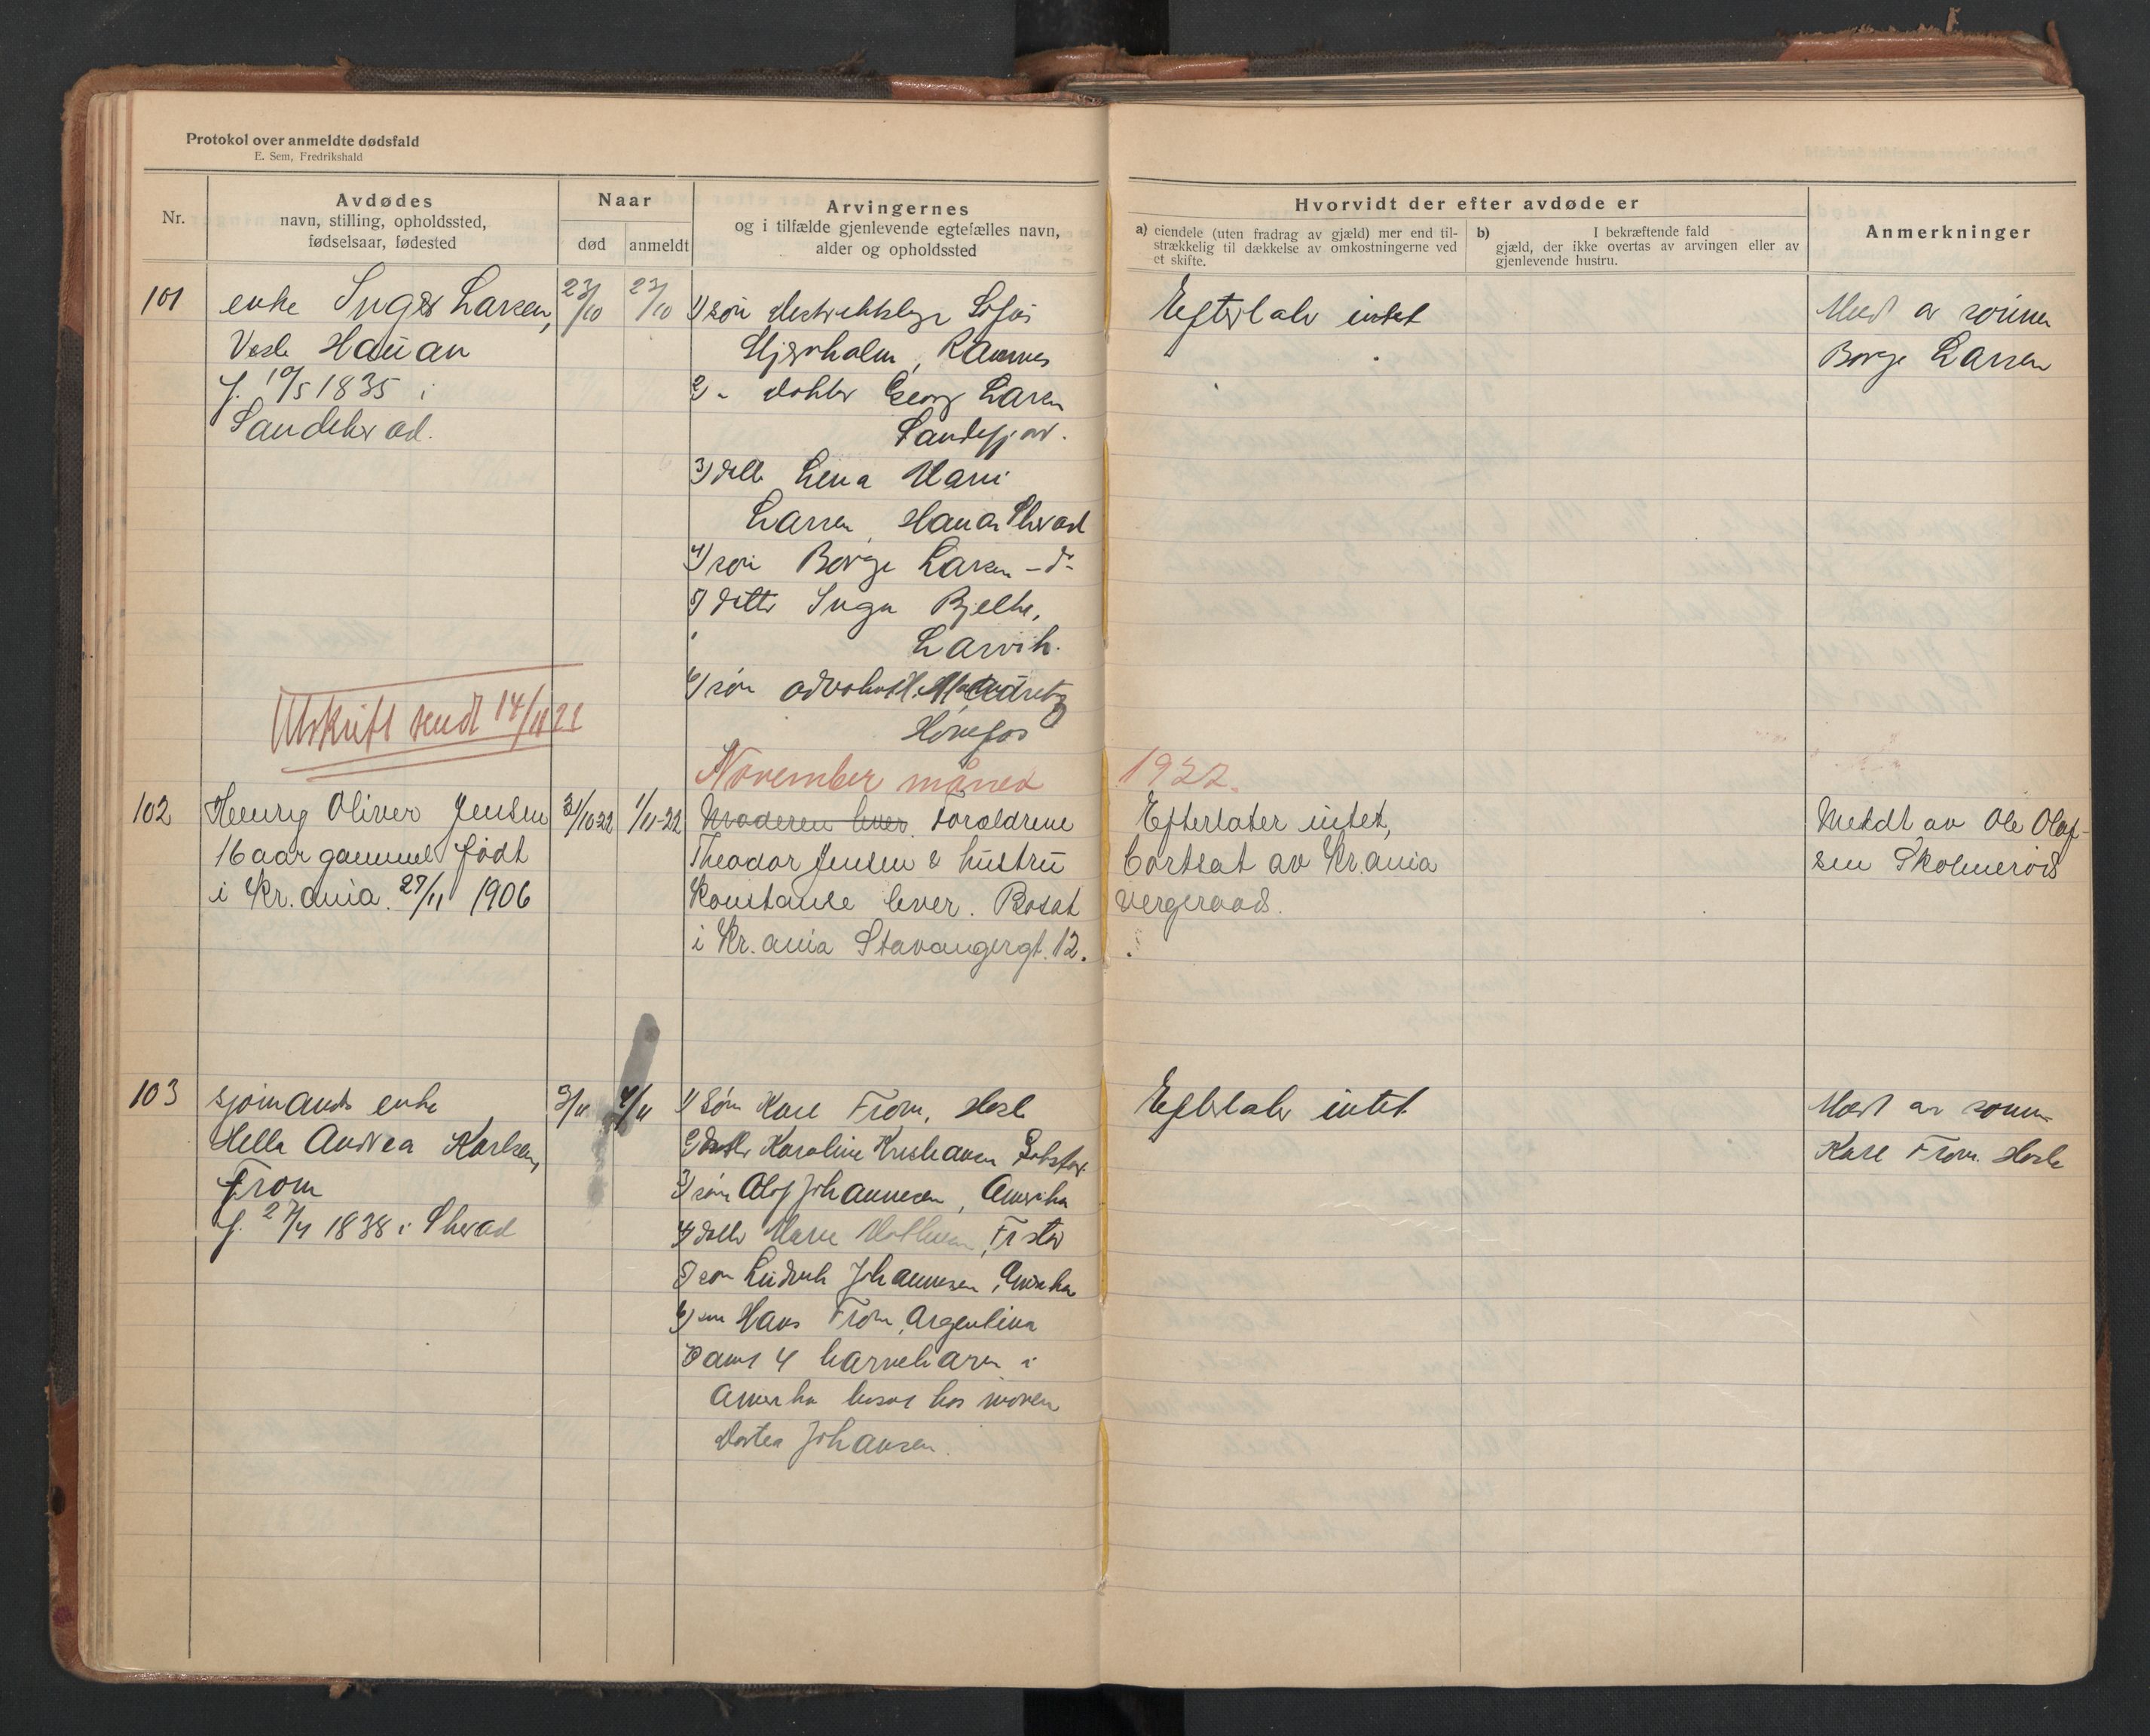 Protokol over anmeldte dødsfald
E. Sem, Fredrikshald
Nr.
Avdødes
navn, stilling, opholdssted,
fødselsaar, fødested
Naar
død
anmeldt
Arvingernes
og i tilfælde gjenlevende egtefælles navn,
alder og opholdssted
Hvorvidt der efter avdøde er
a) eiendele (uten fradrag av gjæld) mer end til-
strækkelig til dækkelse av omkostningerne ved
et skifte.
b) I bekræftende fald
gjæld, der ikke overtas av arvingen eller av
gjenlevende hustru.
Anmerkninger
101
enke Inger Larsen,
Vesle Hauan
f. 10/5 1835 i
Sandeherad.
23/10
27/10
1) søn distriktslæge Sofus
Ramnes
2) - dokter Georg Larsen
Sandefjord.
3) datt Lena Marie
Larsen, Hauan Sherad
4) søn Borge Larsen - do -
5) datter Inga Bjelke,
Larvik.
6) søn advokat
Hønefos
Efterlater intet
Meldt av sønnen
Borge Larsen
Utskrift sendt 14/11 22
November måned 1922.
102
Henry Oliver Jensen
16 aar gammel født
i Kr.ania. 27/11 1906
31/10-22
1/11-22
Moderen lever. Forældrene
Theodor Jensen & hustru
Konstanse lever. Bosat
i Kr.ania Stavangergt. 12.
Efterlater intet,
bortsat av Kr.ania
vergeraad.
Meldt av Ole Olaf-
sen Skolmerød
103
sjømands enke
Helle Andrea Karlsen,
From
f. 27/4 1838 i Sherad
3/11
4/11
1) Søn Karl From, Hasle
2) datter Karoline Kristiansen
3) søn Olof Johannesen, Amerika
4) datter Marie Mathisen, Fr.stad
5) søn Ludvik Johannesen, Amerika
6) søn Hans From, Argentina
7) samt 4 barnebarn i
Amerika bosat hos moren
Dortea Johansen.
Efterlater intet
Meldt av sønnen
Karl From. Hasle